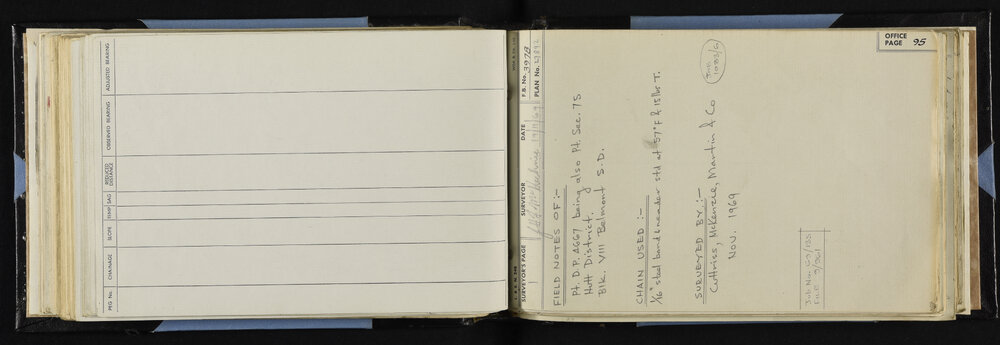 PEG No. CHAINAGE SLOPE TEMP SAG REDUCED DISTANCE OBSERVED BEARING ADJUSTED BEARING
OFFICE PAGE 95
L & S N. 848
SURVEYOR'S PAGE 1 SURVEYOR DATE 19/9/69 F.B. No. 3978 PLAN No.
FIELD NOTES OF :-
Pt. D.P. A667 being also Pt. Sec. 75
Hutt District.
Blk. VIII Belmont S.D.
CHAIN USED :-
1/16" steel band Eneader std at 57°F & 15 lbs T.
SURVEYED BY :-
Cuttriss, McKenzie, Martin & Co
NOV. 1969
Job No. 69/135
FILE 9/361